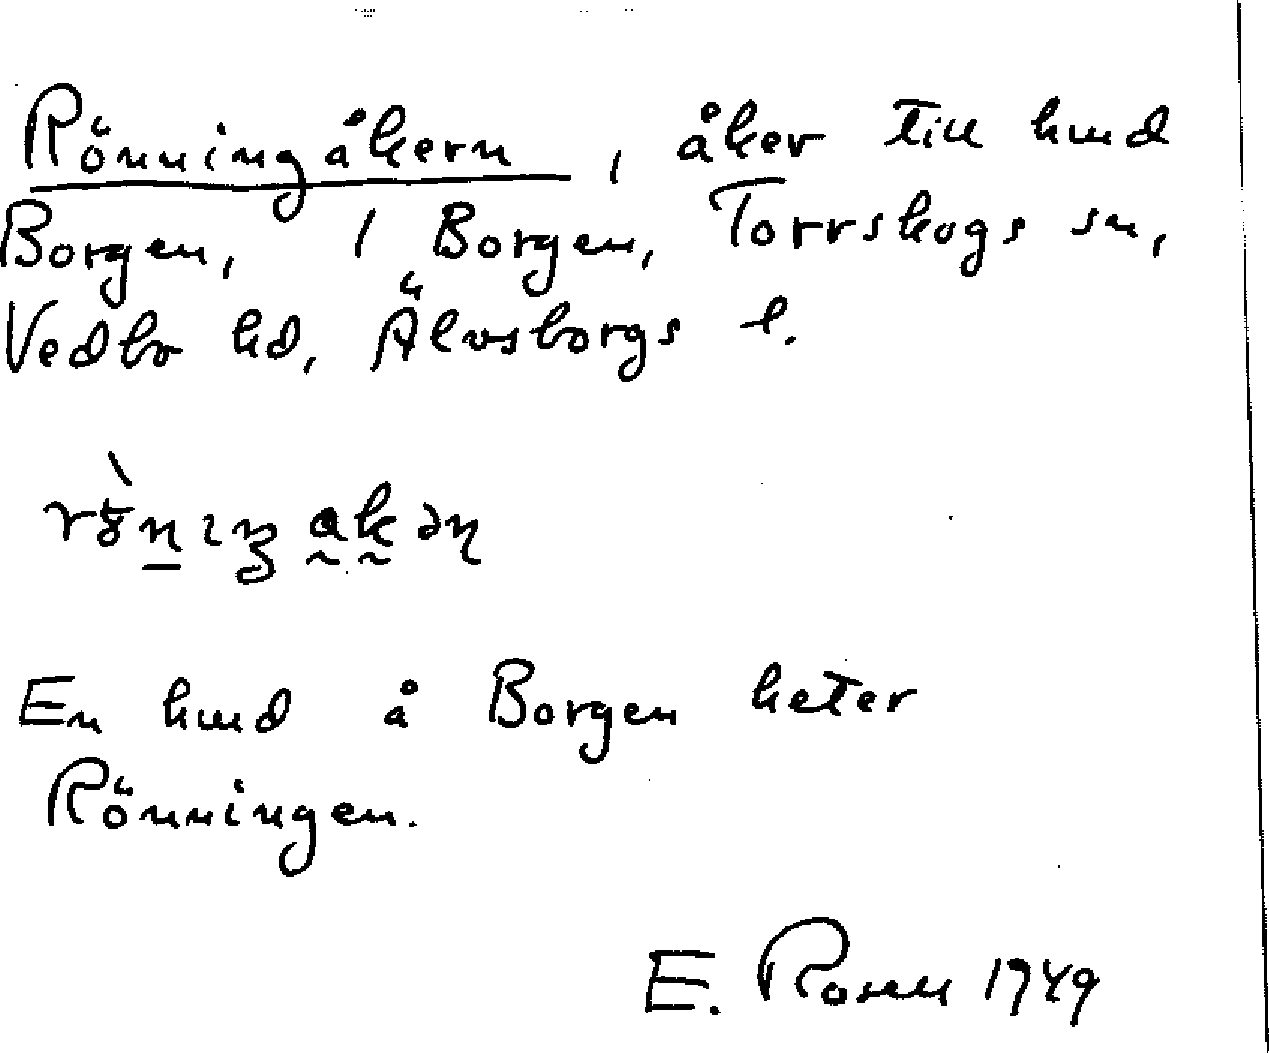 Rönningåkern, åker till hmd
Borgen, 1 Borgen, Torrskogs sn,
Vedbo hd, Älvsborgs l.
En hmd å Borgen heter
Rönningen.
E. Rosen 1949